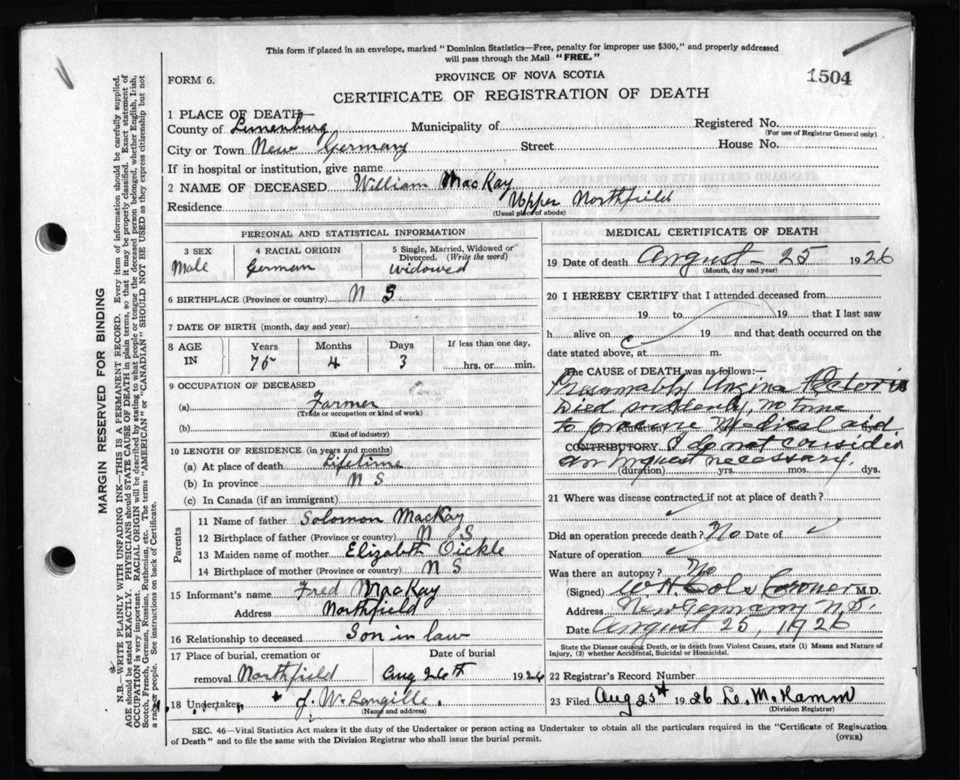 This form if placed in an envelope, marked "Dominion Statistics—Free, penalty for improper use $300," and properly addressed
will pass through the Mail "FREE."
FORM 6.
PROVINCE OF NOVA SCOTIA
1504
CERTIFICATE OF REGISTRATION OF DEATH
1 PLACE OF DEATH—
County of Lunenburg Municipality of Registered No.
(For use of Registrar General only)
City or Town New Germany Street House No.
If in hospital or institution, give name
2 NAME OF DECEASED William MacKay
Residence Upper Northfield
(Usual place of abode)
PERSONAL AND STATISTICAL INFORMATION
3 SEX 4 RACIAL ORIGIN 5 Single, Married, Widowed or
Divorced. (Write the word)
Male German Widowed
6 BIRTHPLACE (Province or country) N S
7 DATE OF BIRTH (month, day and year)
8 AGE Years Months Days If less than one day,
IN 75 4 3 hrs. or min.
9 OCCUPATION OF DECEASED
(a) Farmer
(Trade or occupation or kind of work)
(b)
(Kind of industry)
10 LENGTH OF RESIDENCE (in years and months)
(a) At place of death Lifetime
(b) In province N S
(c) In Canada (if an immigrant)
Parents
11 Name of father Solomon MacKay
12 Birthplace of father (Province or country) N S
13 Maiden name of mother Elizabeth Oickle
14 Birthplace of mother (Province or country) N S
15 Informant's name Fred MacKay
Address Northfield
16 Relationship to deceased Son in law
17 Place of burial, cremation or Date of burial
removal Northfield Aug 26th 1926
18 Undertaker J. W. Langille.
(Name and address)
MEDICAL CERTIFICATE OF DEATH
19 Date of death August 25 1926
(Month, day and year)
20 I HEREBY CERTIFY that I attended deceased from
19 to 19 that I last saw
h alive on 19 and that death occurred on the
date stated above, at m.
The CAUSE OF DEATH was as follows:—
Presumably Angina Pectoris
Died suddenly, no time
to procure Medical aid.
(duration)
CONTRIBUTORY. I do not consider
an inquest necessary.
(duration) yrs. mos. dys.
21 Where was disease contracted if not at place of death?
Did an operation precede death? No Date of
Nature of operation
Was there an autopsy? No
(Signed) W. N. Cole Coroner M.D.
Address New Germany N.S.
Date August 25, 1926
State the Disease causing Death, or in death from Violent Causes, state (1) Means and Nature of
Injury, (2) whether Accidental, Suicidal or Homicidal.
22 Registrar's Record Number
23 Filed Aug 25th 1926 L. M. Hamm
(Division Registrar)
SEC. 46—Vital Statistics Act makes it the duty of the Undertaker or person acting as Undertaker to obtain all the particulars required in the "Certificate of Registration
of Death" and to file the same with the Division Registrar who shall issue the burial permit.
(OVER)
MARGIN RESERVED FOR BINDING
N.B.—WRITE PLAINLY WITH UNFADING INK—THIS IS A PERMANENT RECORD. Every item of information should be carefully supplied.
AGE should be stated EXACTLY. PHYSICIANS should STATE CAUSE OF DEATH in plain terms, so that it may be properly classified. Exact statement of
OCCUPATION is very important. RACIAL ORIGIN will be described by stating to what people or tongue the deceased person belonged, whether English, Irish,
Scotch, French, German, Russian, Ruthenian, etc. The terms "AMERICAN" or "CANADIAN" SHOULD NOT BE USED as they express citizenship but not
a race or people. See instructions on back of Certificate.